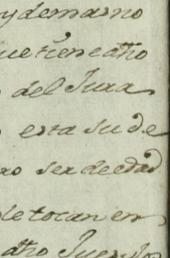 y demas no
que tiene dho
del Jura
esta su de
ser de edad
le tocan en
dho